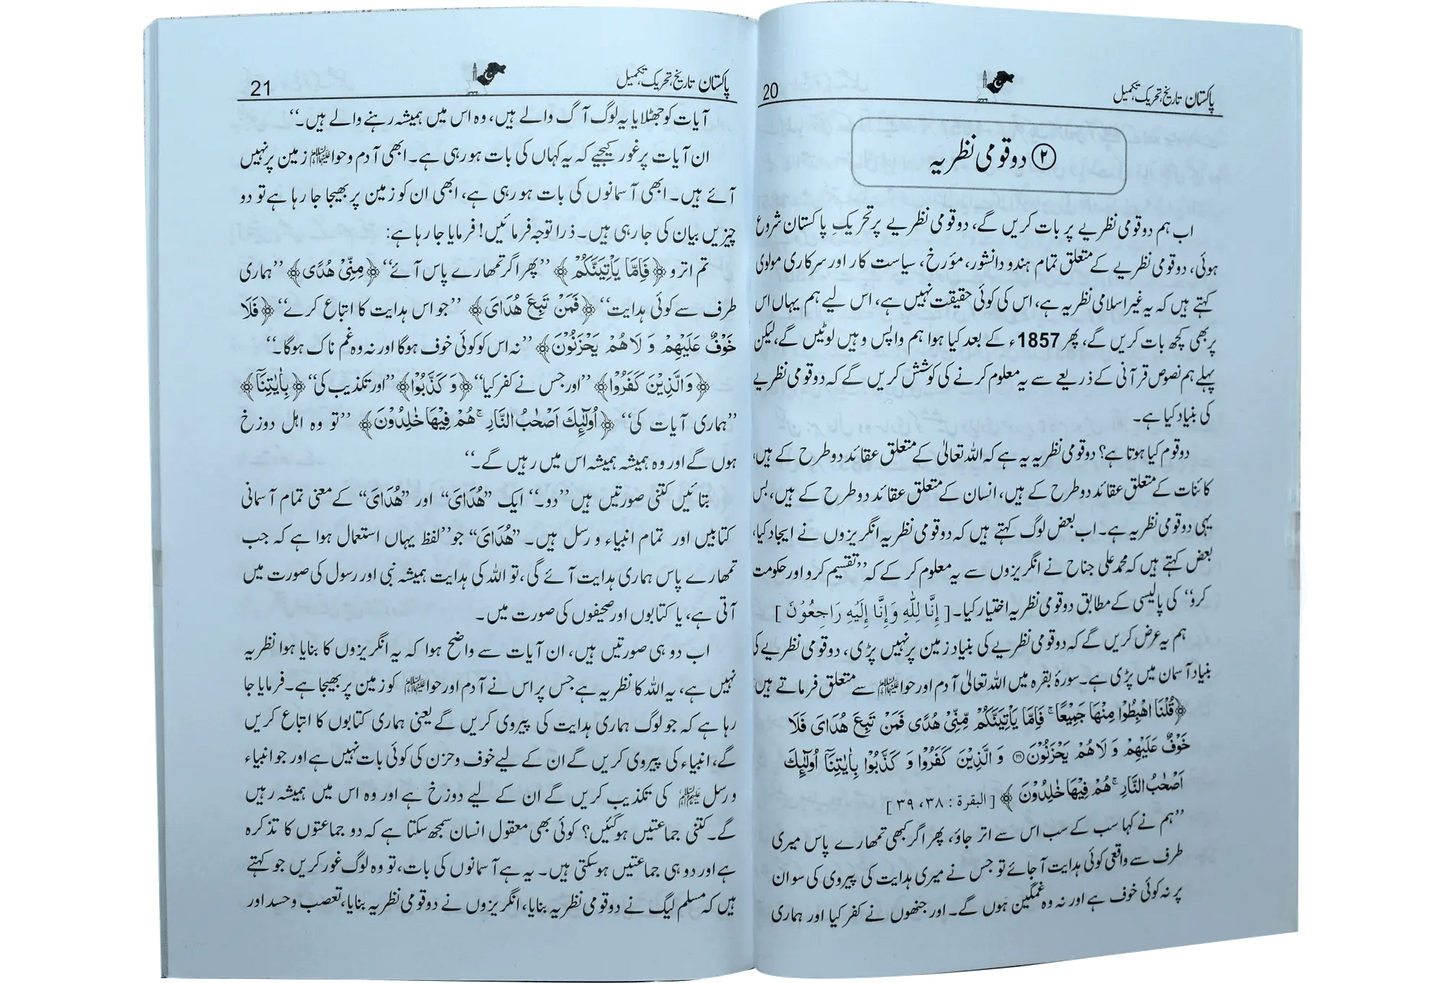 پاکستان تاریخ، تحریک، تکمیل
20
② دو قومی نظریہ
اب ہم دو قومی نظریے پر بات کریں گے، دو قومی نظریے پر تحریک پاکستان شروع
ہوئی، دو قومی نظریے کے متعلق تمام ہندو دانشور، مؤرخ، سیاست کار اور سرکاری مولوی
کہتے ہیں کہ یہ غیر اسلامی نظریہ ہے، اس کی کوئی حقیقت نہیں ہے، اس لیے ہم یہاں اس
پر بھی کچھ بات کریں گے، پھر 1857ء کے بعد کیا ہوا ہم واپس وہیں لوٹیں گے، لیکن
پہلے ہم نصوص قرآنی کے ذریعے سے یہ معلوم کرنے کی کوشش کریں گے کہ دو قومی نظریے
کی بنیاد کیا ہے۔
دو قوم کیا ہوتا ہے؟ دو قومی نظریہ یہ ہے کہ اللہ تعالیٰ کے متعلق عقائد دو طرح کے ہیں،
کائنات کے متعلق عقائد دو طرح کے ہیں، انسان کے متعلق عقائد دو طرح کے ہیں، بس
یہی دو قومی نظریہ ہے۔ اب بعض لوگ کہتے ہیں کہ دو قومی نظریہ انگریزوں نے ایجاد کیا،
بعض کہتے ہیں کہ محمد علی جناح نے انگریزوں سے یہ معلوم کر کے کہ ”تقسیم کرو اور حکومت
کرو“ کی پالیسی کے مطابق دو قومی نظریہ اختیار کیا۔ [ إِنَّا لِلّٰهِ وَإِنَّا إِلَيْهِ رَاجِعُوْنَ ]
ہم یہ عرض کریں گے کہ دو قومی نظریے کی بنیاد زمین پر نہیں پڑی، دو قومی نظریے کی
بنیاد آسمان میں پڑی ہے۔ سورۂ بقرہ میں اللہ تعالیٰ آدم اور حوا علیہما السلام سے متعلق فرماتے ہیں:
﴿قُلْنَا اهْبِطُوْا مِنْهَا جَمِيْعًا ۚ فَاِمَّا يَاْتِيَنَّكُمْ مِّنِّيْ هُدًى فَمَنْ تَبِعَ هُدَايَ فَلَا
خَوْفٌ عَلَيْهِمْ وَ لَا هُمْ يَحْزَنُوْنَ ۝ وَ الَّذِيْنَ كَفَرُوْا وَ كَذَّبُوْا بِاٰيٰتِنَآ اُولٰٓئِكَ
اَصْحٰبُ النَّارِ ۚ هُمْ فِيْهَا خٰلِدُوْنَ ﴾ [ البقرة : ٣٨، ٣٩ ]
”ہم نے کہا سب کے سب اس سے اتر جاؤ، پھر اگر کبھی تمھارے پاس میری
طرف سے واقعی کوئی ہدایت آ جائے تو جس نے میری ہدایت کی پیروی کی سو ان
پر نہ کوئی خوف ہے اور نہ وہ غمگین ہوں گے۔ اور جنھوں نے کفر کیا اور ہماری
پاکستان تاریخ، تحریک، تکمیل
21
آیات کو جھٹلایا یہ لوگ آگ والے ہیں، وہ اس میں ہمیشہ رہنے والے ہیں۔“
ان آیات پر غور کیجیے کہ یہ کہاں کی بات ہو رہی ہے۔ ابھی آدم وحوا علیہما السلام زمین پر نہیں
آئے ہیں۔ ابھی آسمانوں کی بات ہو رہی ہے، ابھی ان کو زمین پر بھیجا جا رہا ہے تو دو
چیزیں بیان کی جا رہی ہیں۔ ذرا توجہ فرمائیں! فرمایا جا رہا ہے:
تم اترو ﴿فَاِمَّا يَاْتِيَنَّكُمْ﴾ ”پھر اگر تمھارے پاس آئے“ ﴿مِنِّيْ هُدًى﴾ ”ہماری
طرف سے کوئی ہدایت“ ﴿فَمَنْ تَبِعَ هُدَايَ﴾ ”جو اس ہدایت کا اتباع کرے“ ﴿فَلَا
خَوْفٌ عَلَيْهِمْ وَ لَا هُمْ يَحْزَنُوْنَ﴾ ”نہ اس کو کوئی خوف ہوگا اور نہ وہ غم ناک ہوگا۔“
﴿وَ الَّذِيْنَ كَفَرُوْا﴾ ”اور جس نے کفر کیا“ ﴿وَ كَذَّبُوْا﴾ ”اور تکذیب کی“ ﴿بِاٰيٰتِنَآ﴾
”ہماری آیات کی“ ﴿اُولٰٓئِكَ اَصْحٰبُ النَّارِ ۚ هُمْ فِيْهَا خٰلِدُوْنَ﴾ ”تو وہ اہل دوزخ
ہوں گے اور وہ ہمیشہ ہمیشہ اس میں رہیں گے۔“
بتائیں کتنی صورتیں ہیں ”دو۔“ ایک ”هُدَايَ“ اور ”هُدَايَ“ کے معنی تمام آسمانی
کتابیں اور تمام انبیاء و رسل ہیں۔ ”هُدَايَ“ جو ”لفظ یہاں استعمال ہوا ہے کہ جب
تمھارے پاس ہماری ہدایت آئے گی، تو اللہ کی ہدایت ہمیشہ نبی اور رسول کی صورت میں
آتی ہے، یا کتابوں اور صحیفوں کی صورت میں۔
اب دو ہی صورتیں ہیں، ان آیات سے واضح ہوا کہ یہ انگریزوں کا بنایا ہوا نظریہ
نہیں ہے، یہ اللہ کا نظریہ ہے جس پر اس نے آدم اور حوا علیہما السلام کو زمین پر بھیجا ہے۔ فرمایا جا
رہا ہے کہ جو لوگ ہماری ہدایت کی پیروی کریں گے یعنی ہماری کتابوں کا اتباع کریں
گے، انبیاء کی پیروی کریں گے ان کے لیے خوف و حزن کی کوئی بات نہیں ہے اور جو انبیاء
و رسل علیہم السلام کی تکذیب کریں گے ان کے لیے دوزخ ہے اور وہ اس میں ہمیشہ رہیں
گے۔ کتنی جماعتیں ہوگئیں؟ کوئی بھی معقول انسان سمجھ سکتا ہے کہ دو جماعتوں کا تذکرہ
ہے اور دو ہی جماعتیں ہو سکتی ہیں۔ یہ ہے آسمانوں کی بات، تو وہ لوگ غور کریں جو کہتے
ہیں کہ مسلم لیگ نے دو قومی نظریہ بنایا، انگریزوں نے دو قومی نظریہ بنایا، تعصب و حسد اور